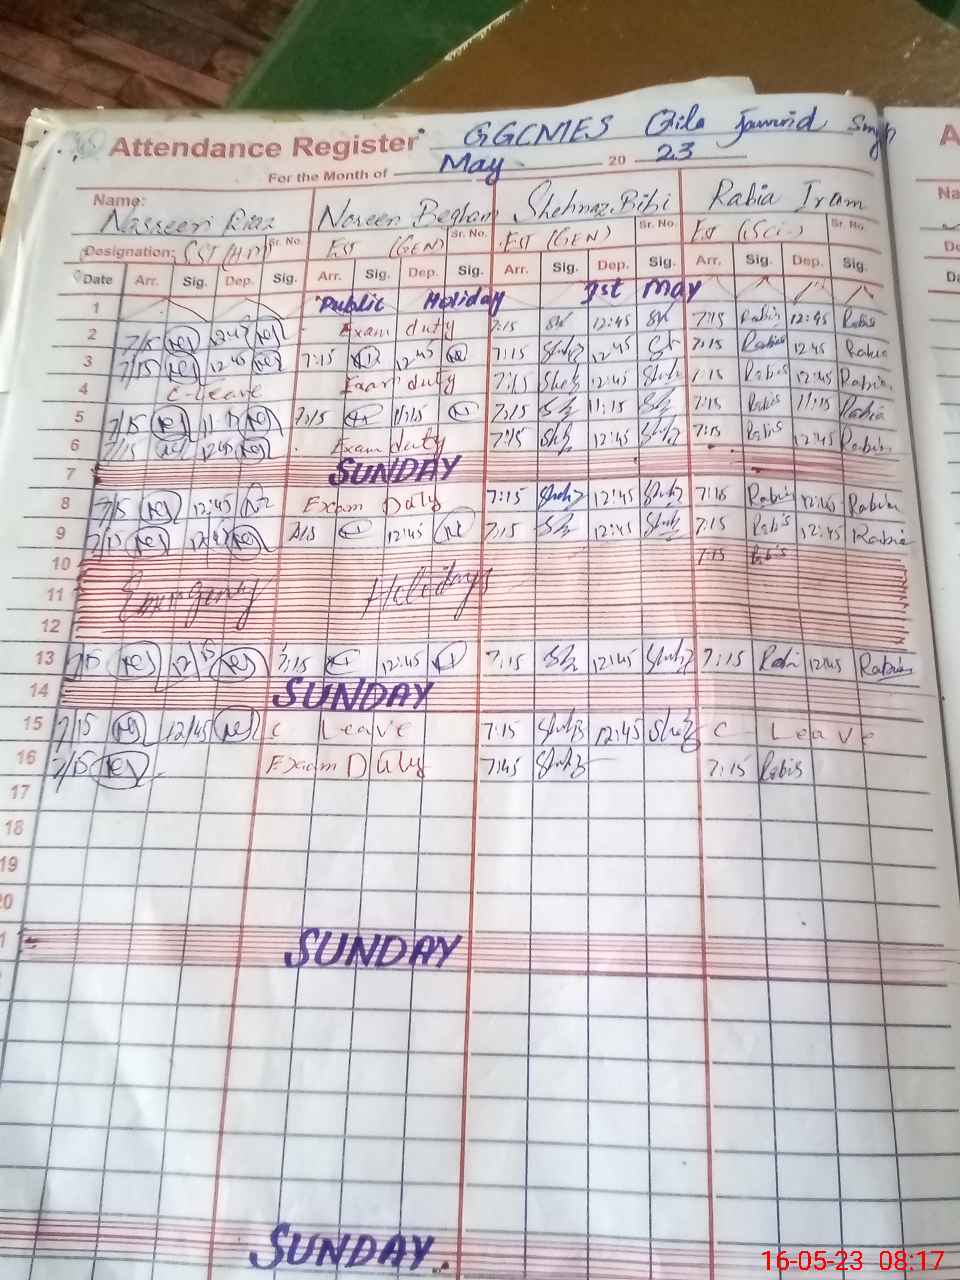 Attendance Register GGCMES Qila Jawind Singh
For the Month of May 20 23
Name: Nasreen Riaz Noreen Begham Shehnaz Bibi Rabia Iram
Sr. No. Sr. No. Sr. No. Sr. No.
Designation: EST (GEN) EST (GEN) EST (Sci)
Date Arr. Sig. Dep. Sig. Arr. Sig. Dep. Sig. Arr. Sig. Dep. Sig. Arr. Sig. Dep. Sig.
1 Public Holiday 1st May
2 7/15 12:45 Exam duty 7:15 Sh 12:45 Sh 7:15 Rabis 12:45 Rabis
3 7/15 12:45 7:15 12:45 7:15 Shehz 12:45 Sh 7:15 Rabis 12:45 Rabia
4 C-Leave Exam duty 7:15 Sheh 12:45 Shehz 7:15 Rabis 12:45 Rabia
5 7/15 11:15 7:15 11:15 7:15 Sh 11:15 Sh 7:15 Rabis 11:15 Rabia
6 7/15 12:45 Exam duty 7:15 Sh 12:45 Shehz 7:15 Rabis 12:45 Rabia
7 SUNDAY
8 7/15 12:45 Exam Duty 7:15 Shehz 12:45 Shehz 7:15 Rabis 12:45 Rabia
9 7/15 12:45 7:15 12:45 7:15 Sh 12:45 Shehz 7:15 Rabis 12:45 Rabia
10 7:15 Rabis
11 Emergency Holidays
12
13 7/15 7:15 12:45 7:15 Sh 12:45 Shehz 7:15 Rabi 12:45 Rabia
14 SUNDAY
15 7/15 12/45 C Leave 7:15 Shehz 12:45 Shehz C Leave
16 7/15 Exam Duty 7:45 Shehz 7:15 Rabis
17
18
19
20
SUNDAY
SUNDAY
16-05-23 08:17